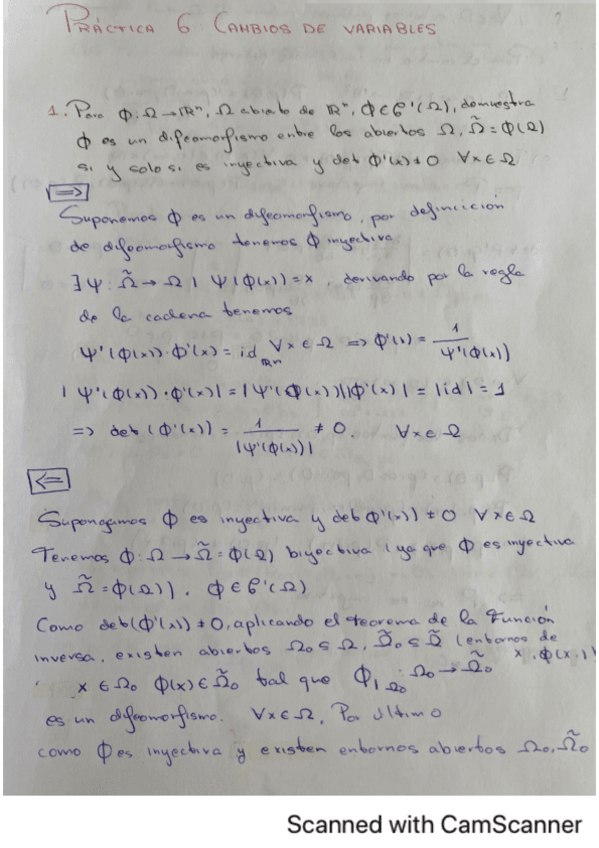 PRÁCTICA 6 CAMBIOS DE VARIABLES
1. Para Φ: Ω → ℝⁿ, Ω abierto de ℝⁿ, Φ ∈ 𝒞'(Ω), demuestra
Φ es un difeomorfismo entre los abiertos Ω, Ω̃ = Φ(Ω)
si y solo si es inyectiva y det Φ'(x) ≠ 0 ∀x ∈ Ω
⇒
Suponemos Φ es un difeomorfismo, por definición
de difeomorfismo tenemos Φ inyectiva
∃ Ψ: Ω̃ → Ω | Ψ(Φ(x)) = x, derivando por la regla
de la cadena tenemos
Ψ'(Φ(x))·Φ'(x) = id_ℝⁿ ∀x ∈ Ω ⇒ Φ'(x) = 1/Ψ'(Φ(x))
|Ψ'(Φ(x))·Φ'(x)| = |Ψ'(Φ(x))||Φ'(x)| = |id| = 1
⇒ det(Φ'(x)) = 1/|Ψ'(Φ(x))| ≠ 0. ∀x ∈ Ω
⇐
Supongamos Φ es inyectiva y det Φ'(x)) ≠ 0 ∀x ∈ Ω
Tenemos Φ: Ω → Ω̃ = Φ(Ω) biyectiva (ya que Φ es inyectiva
y Ω̃ = Φ(Ω)). Φ ∈ 𝒞'(Ω)
Como det(Φ'(x)) ≠ 0, aplicando el teorema de la función
inversa, existen abiertos Ω₀ ⊆ Ω, Ω̃₀ ⊆ Ω̃ (entornos de
x, Φ(x).)
x ∈ Ω₀ Φ(x) ∈ Ω̃₀ tal que Φ|Ω₀ : Ω₀ → Ω̃₀
es un difeomorfismo. ∀x ∈ Ω, Por último
como Φ es inyectiva y existen entornos abiertos Ω₀, Ω̃₀
Scanned with CamScanner